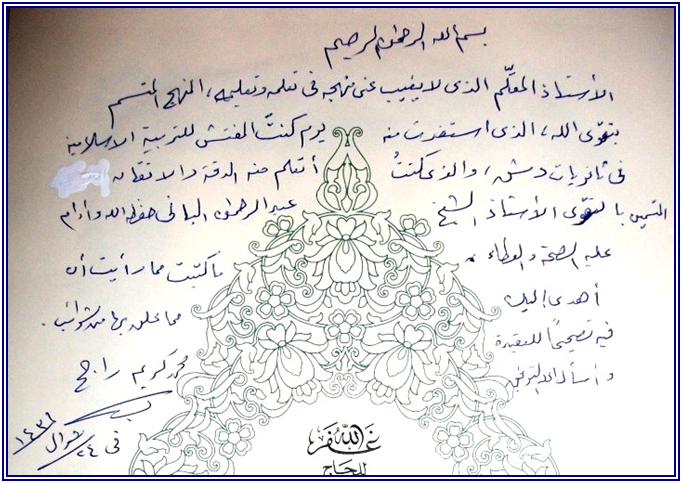 بسم الله الرحمن الرحيم
الأستاذ المعلّم الذي لا يغيب عني منهجه في تعلمه وتعليمه، المنهج المتسم
بتقوى الله، الذي استفدت منه يوم كنتَ المفتش للتربية الإسلامية
في ثانويات دمشق، والذي كنتُ أتعلم منه الدقة والاتقان
بالتقوى الأستاذ الشيخ عبد الرحمن الباني حفظه الله وأدام
عليه الصحة والعطاء.
أهدي إليك ما كتبت مما رأيت أن
فيه تصحيحاً للعقيدة مما علق بها من شوائب.
وأسأل الله التوفيق
محمد كريم راجح
في ٢٤ شوال ١٤٣١
غفر الله
للحاج